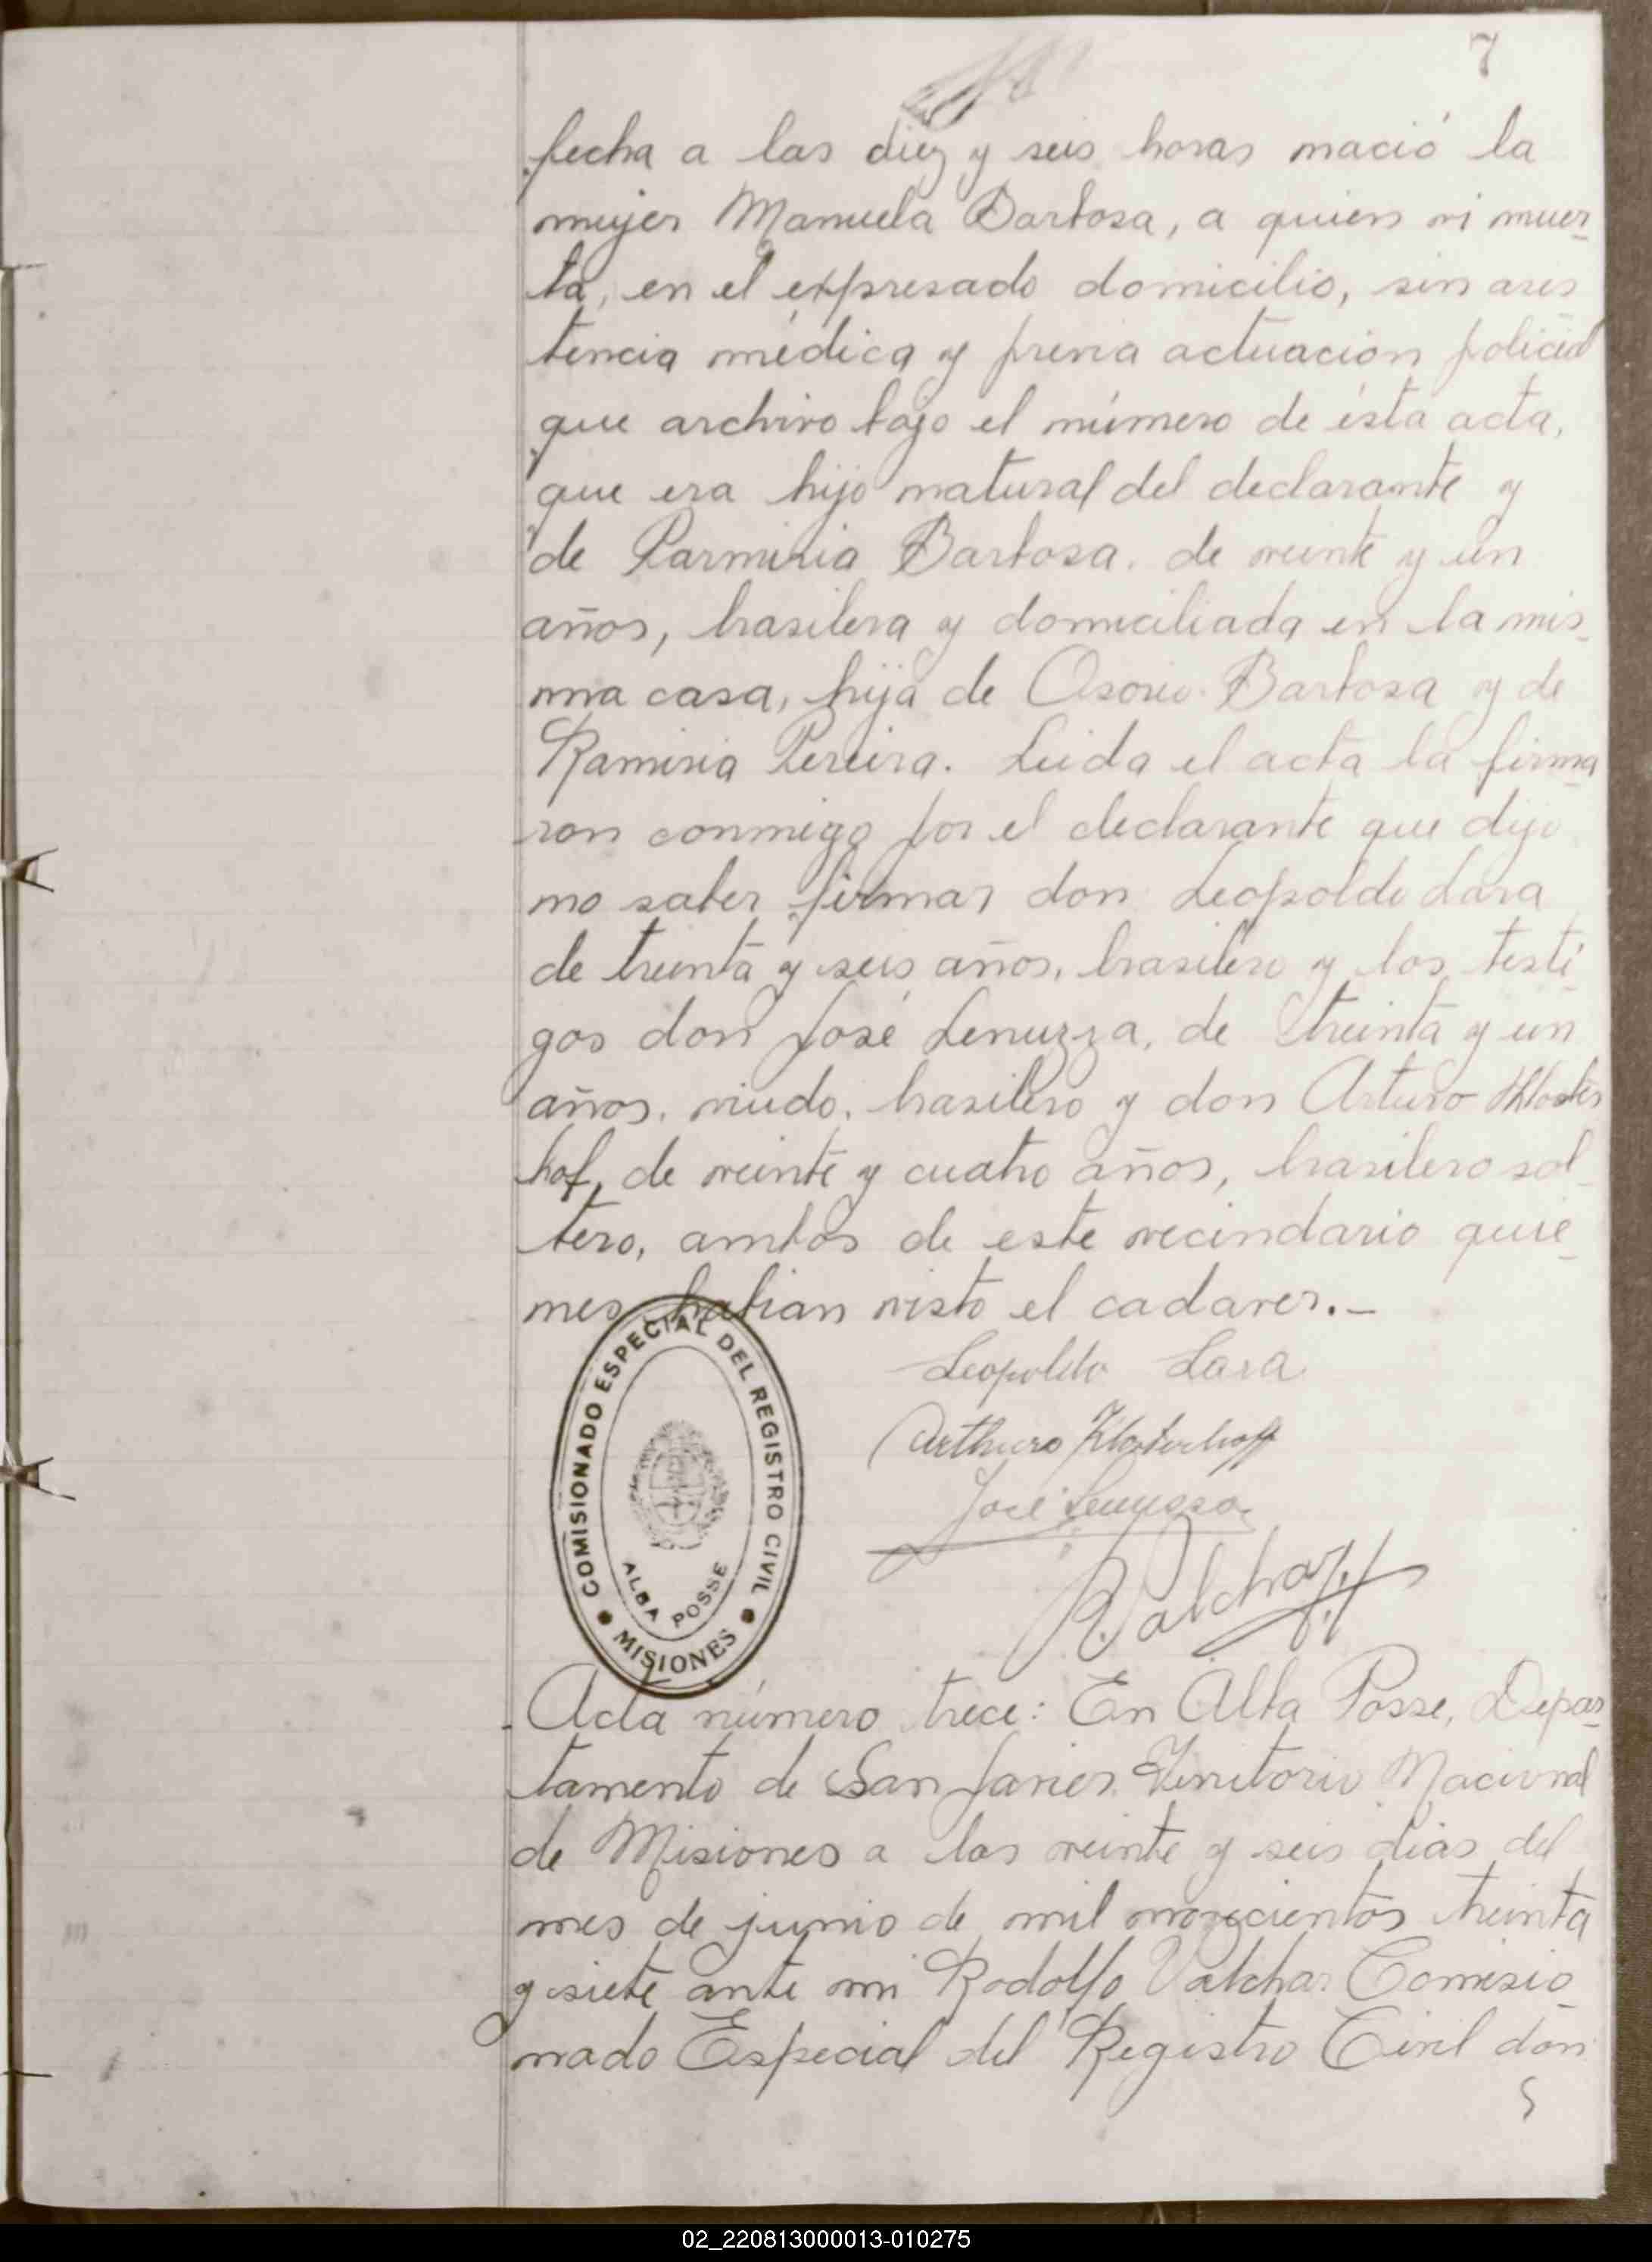 7
fecha a las diez y seis horas nació la
mujer Manuela Barbosa, a quien vi muer-
ta, en el expresado domicilio, sin asis
tencia médica y previa actuación policial
que archivo bajo el número de ésta acta,
que era hijo natural del declarante y
de Parmiria Barbosa. de veinte y un
años, brasilera y domiciliada en la mis-
ma casa, hija de Osorio Barbosa y de
Ramiria Pereira. Leida el acta la firma-
ron conmigo por el declarante que dijo
no saber firmar don Leopoldo Lara
de treinta y seis años, brasilero y los testi-
gos don José Lenuzza, de treinta y un
años. viudo. brasilero y don Arturo
hof, de veinte y cuatro años, brasilero sol-
tero, ambos de este vecindario quie-
nes habian visto el cadaver.-
Leopoldo Lara
Arthuro Klosterhoff
José
R. Valchar
COMISIONADO ESPECIAL DEL REGISTRO CIVIL
ALBA POSSE
MISIONES
-Acta número trece: En Alba Posse, Depar-
tamento de San Javier Territorio Nacional
de Misiones a los veinte y seis dias del
mes de junio de mil novecientos treinta
y siete ante mi Rodolfo Valchar Comisio-
nado Especial del Registro Civil don
02_220813000013-010275